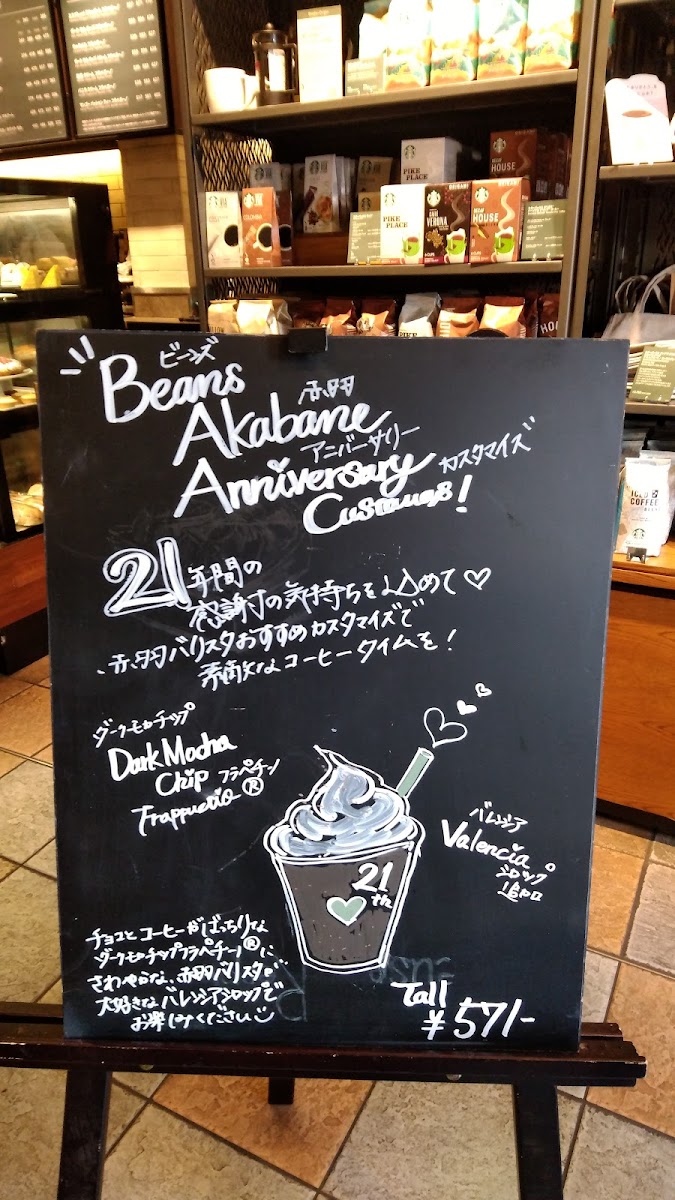 ビーンズ
Beans
赤羽
Akabane
アニバーサリー
Anniversary
カスタマイズ
Customize!
21年間の
感謝の気持ちを込めて♡
赤羽バリスタおすすめカスタマイズで
素敵なコーヒータイムを!
ダークモカチップ
Dark Mocha
Chip フラペチーノ
Frappuccio®
バレンシア
Valencia
シロップ
追加
21
th
チョコとコーヒーがばっちりな
ダークモカチップフラペチーノ®に
さわやかな、赤羽バリスタが
大好きなバレンシアシロップで
お楽しみください
Tall
¥571-
PIKE
PLACE
HOUSE
COLOMBIA
PIKE
PLACE
CAFFÈ
VERONA
DECAF
HOUSE
ICED
COFFEE